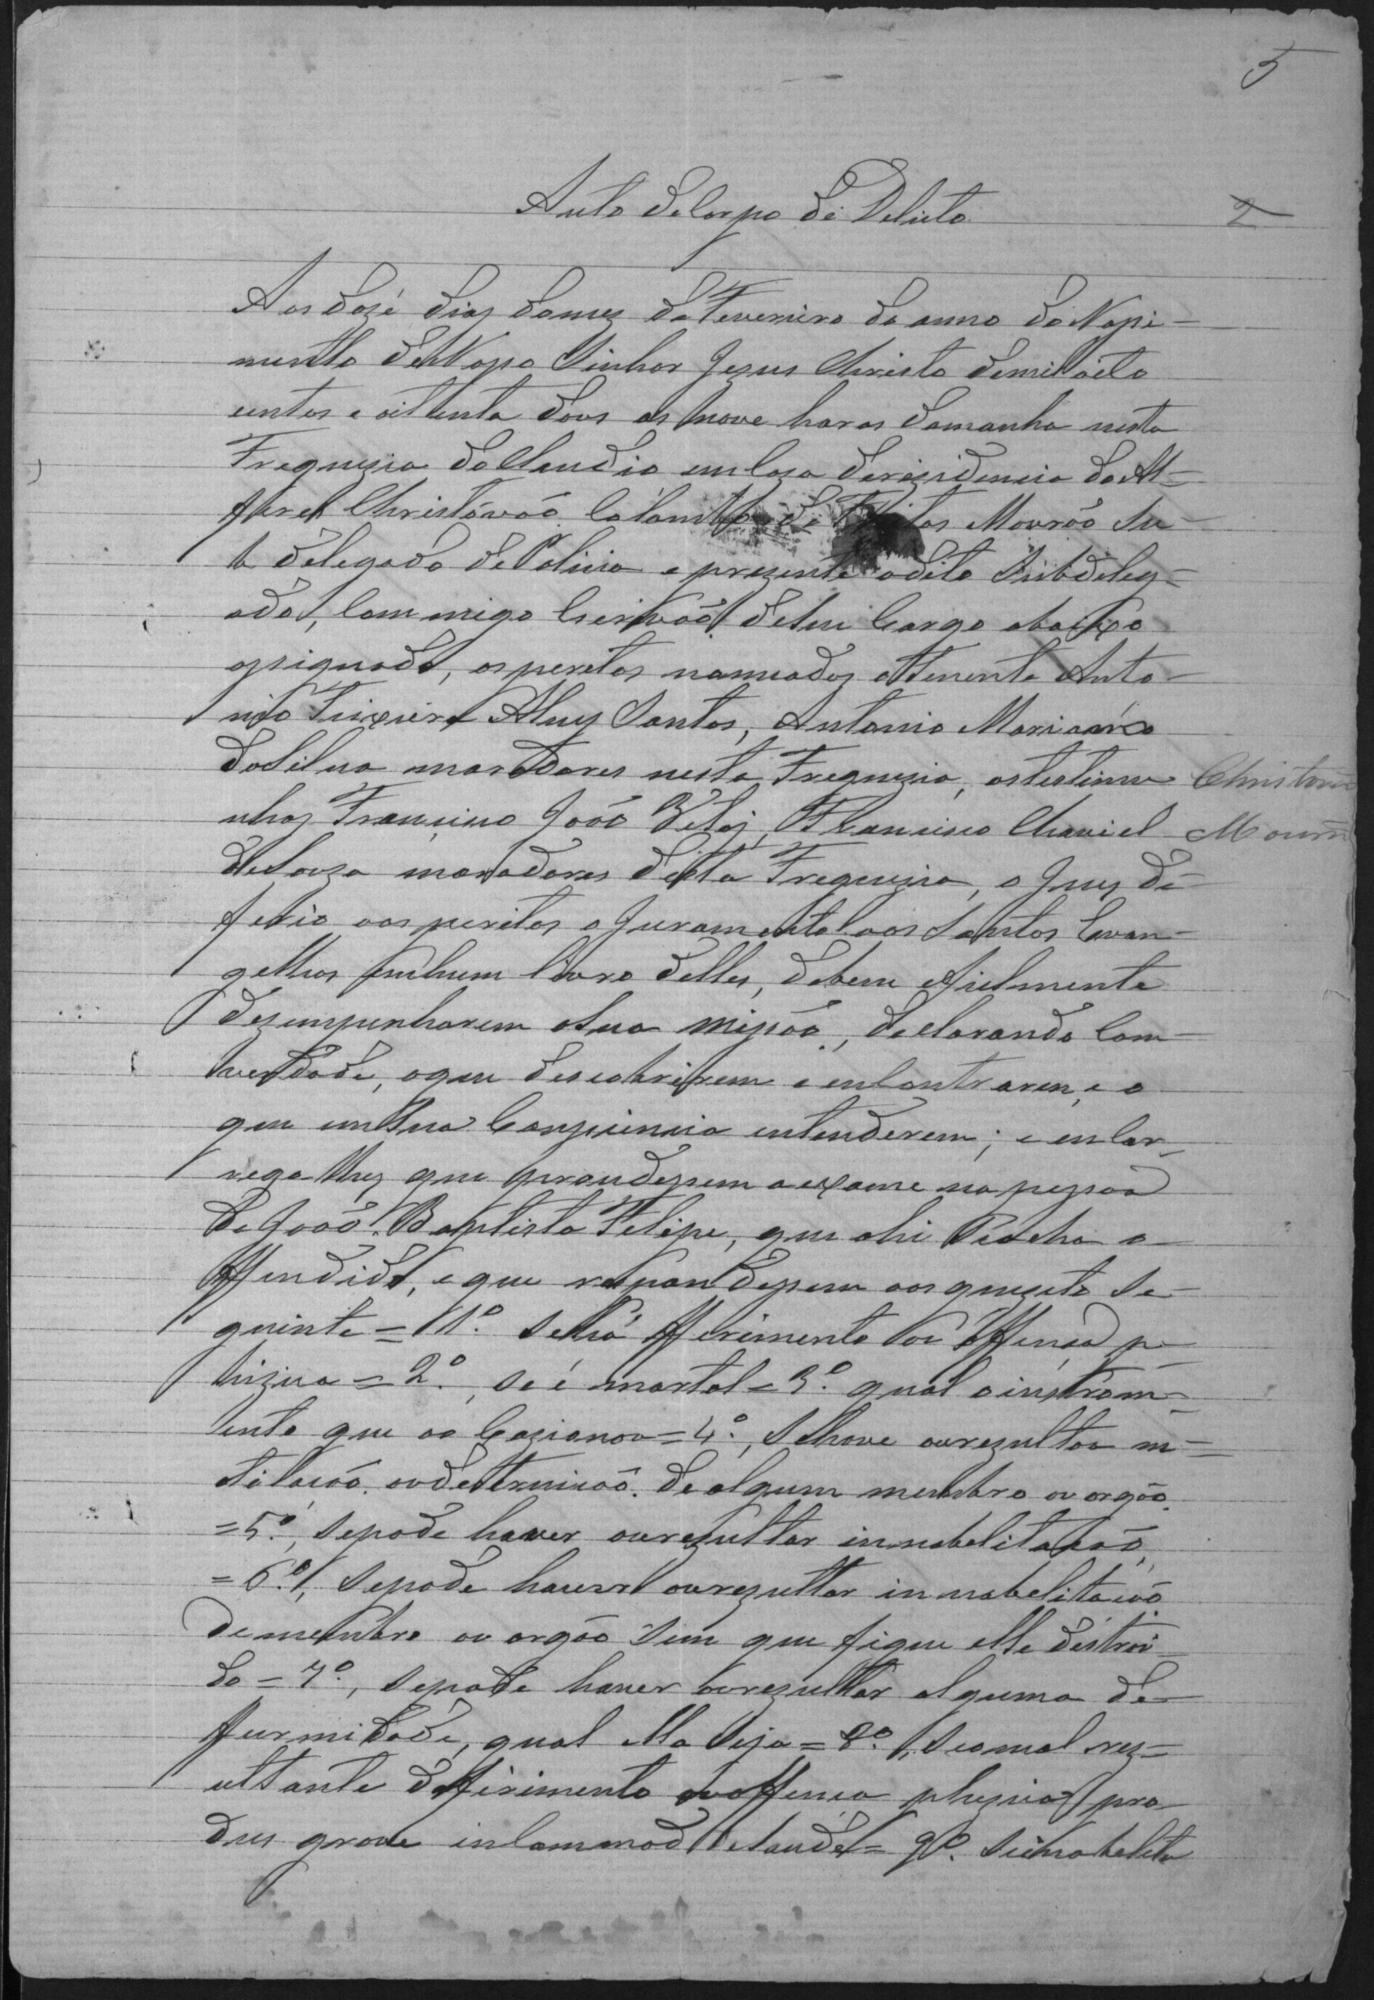 5
Auto de Corpo de Delicto
2
Aos doze dias do mez de Fevereiro do anno do Nasci-
mento de Nosso Sinhor Jezus Christo de mil oito
centos e oittenta dous as nove horas da manha nesta
Freguezia do Claudio em Caza de rezidencia do Al-
feres Christóvaõ Colombo de Freitas Mourão Su-
b delegado de Policia e prezente o dito Subdeleg-
ado, Com migo Escrivaõ de seu Cargo abaixo
assignado, os peretos nomeados o Tenente Anto-
nio Teixeira Alvez Santos, Antonio Marianno
da Silva moradores nesta Freguezia, as testimu
nhas Francisco João, Francisco Chaviel
de Souza moradores desta Freguezia, o Juiz de-
ferio aos peritos o Juramento aos Santos Evan-
gelhos em hum livro delles, de bem e fielmente
dezempenharem a sua missão, declarando Com
verdade, o que descobrirem e encontrarem, e o
que em sua Consciencia entenderem; e encar-
rega lhes que procedessem a exame na pessoa
de João Baptista Felipe, que ahi se acha o
offendido, e que respondessem aos quezito se-
guinte = 1º. Se há fferimento ou offença p
hizica = 2º., se é mortal = 3º. qual o instrom-
ento que os Cazionou = 4º., Se houve ou rezultou m-
utilação ou destruicaõ de algum membro ou orgão
= 5º., se pode haver ou rezultar innabelitacaõ
= 6º., Se pode haver ou rezultar innabelitacaõ
de membro ou orgão sem que fique elle destroi-
do = 7º., se pode haver ou rezulttar alguma de-
furmidade, qual ella seja = 8º., Se o mal rez-
ulttante do ffirimento ou offença phezica pro
dus grave incommodo de saude = 9º. Se innabelita
Christovão
Mourão